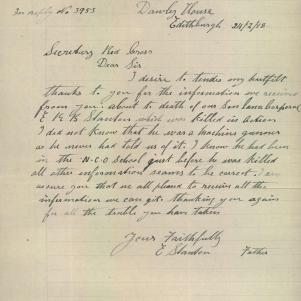 In reply No. 3953
Dawley House
Edithburgh
24/2/18
Secretary Red Cross
Dear Sir
I desire to tender my heartfelt
thanks to you for the information we received
from you about to death of our Son Lance Corporal
E Stanton which was Killed in Action
I did not know that he was a machine gunner
as he never had told us of it. I know he had been
in the N.C.O School just before he was killed
all other information seems to be corect. I am
assure you that we all pleased to receive all the
information we can git. thanking you again
for all the truble you have taken
Yours Faithfully
E Stanton Father